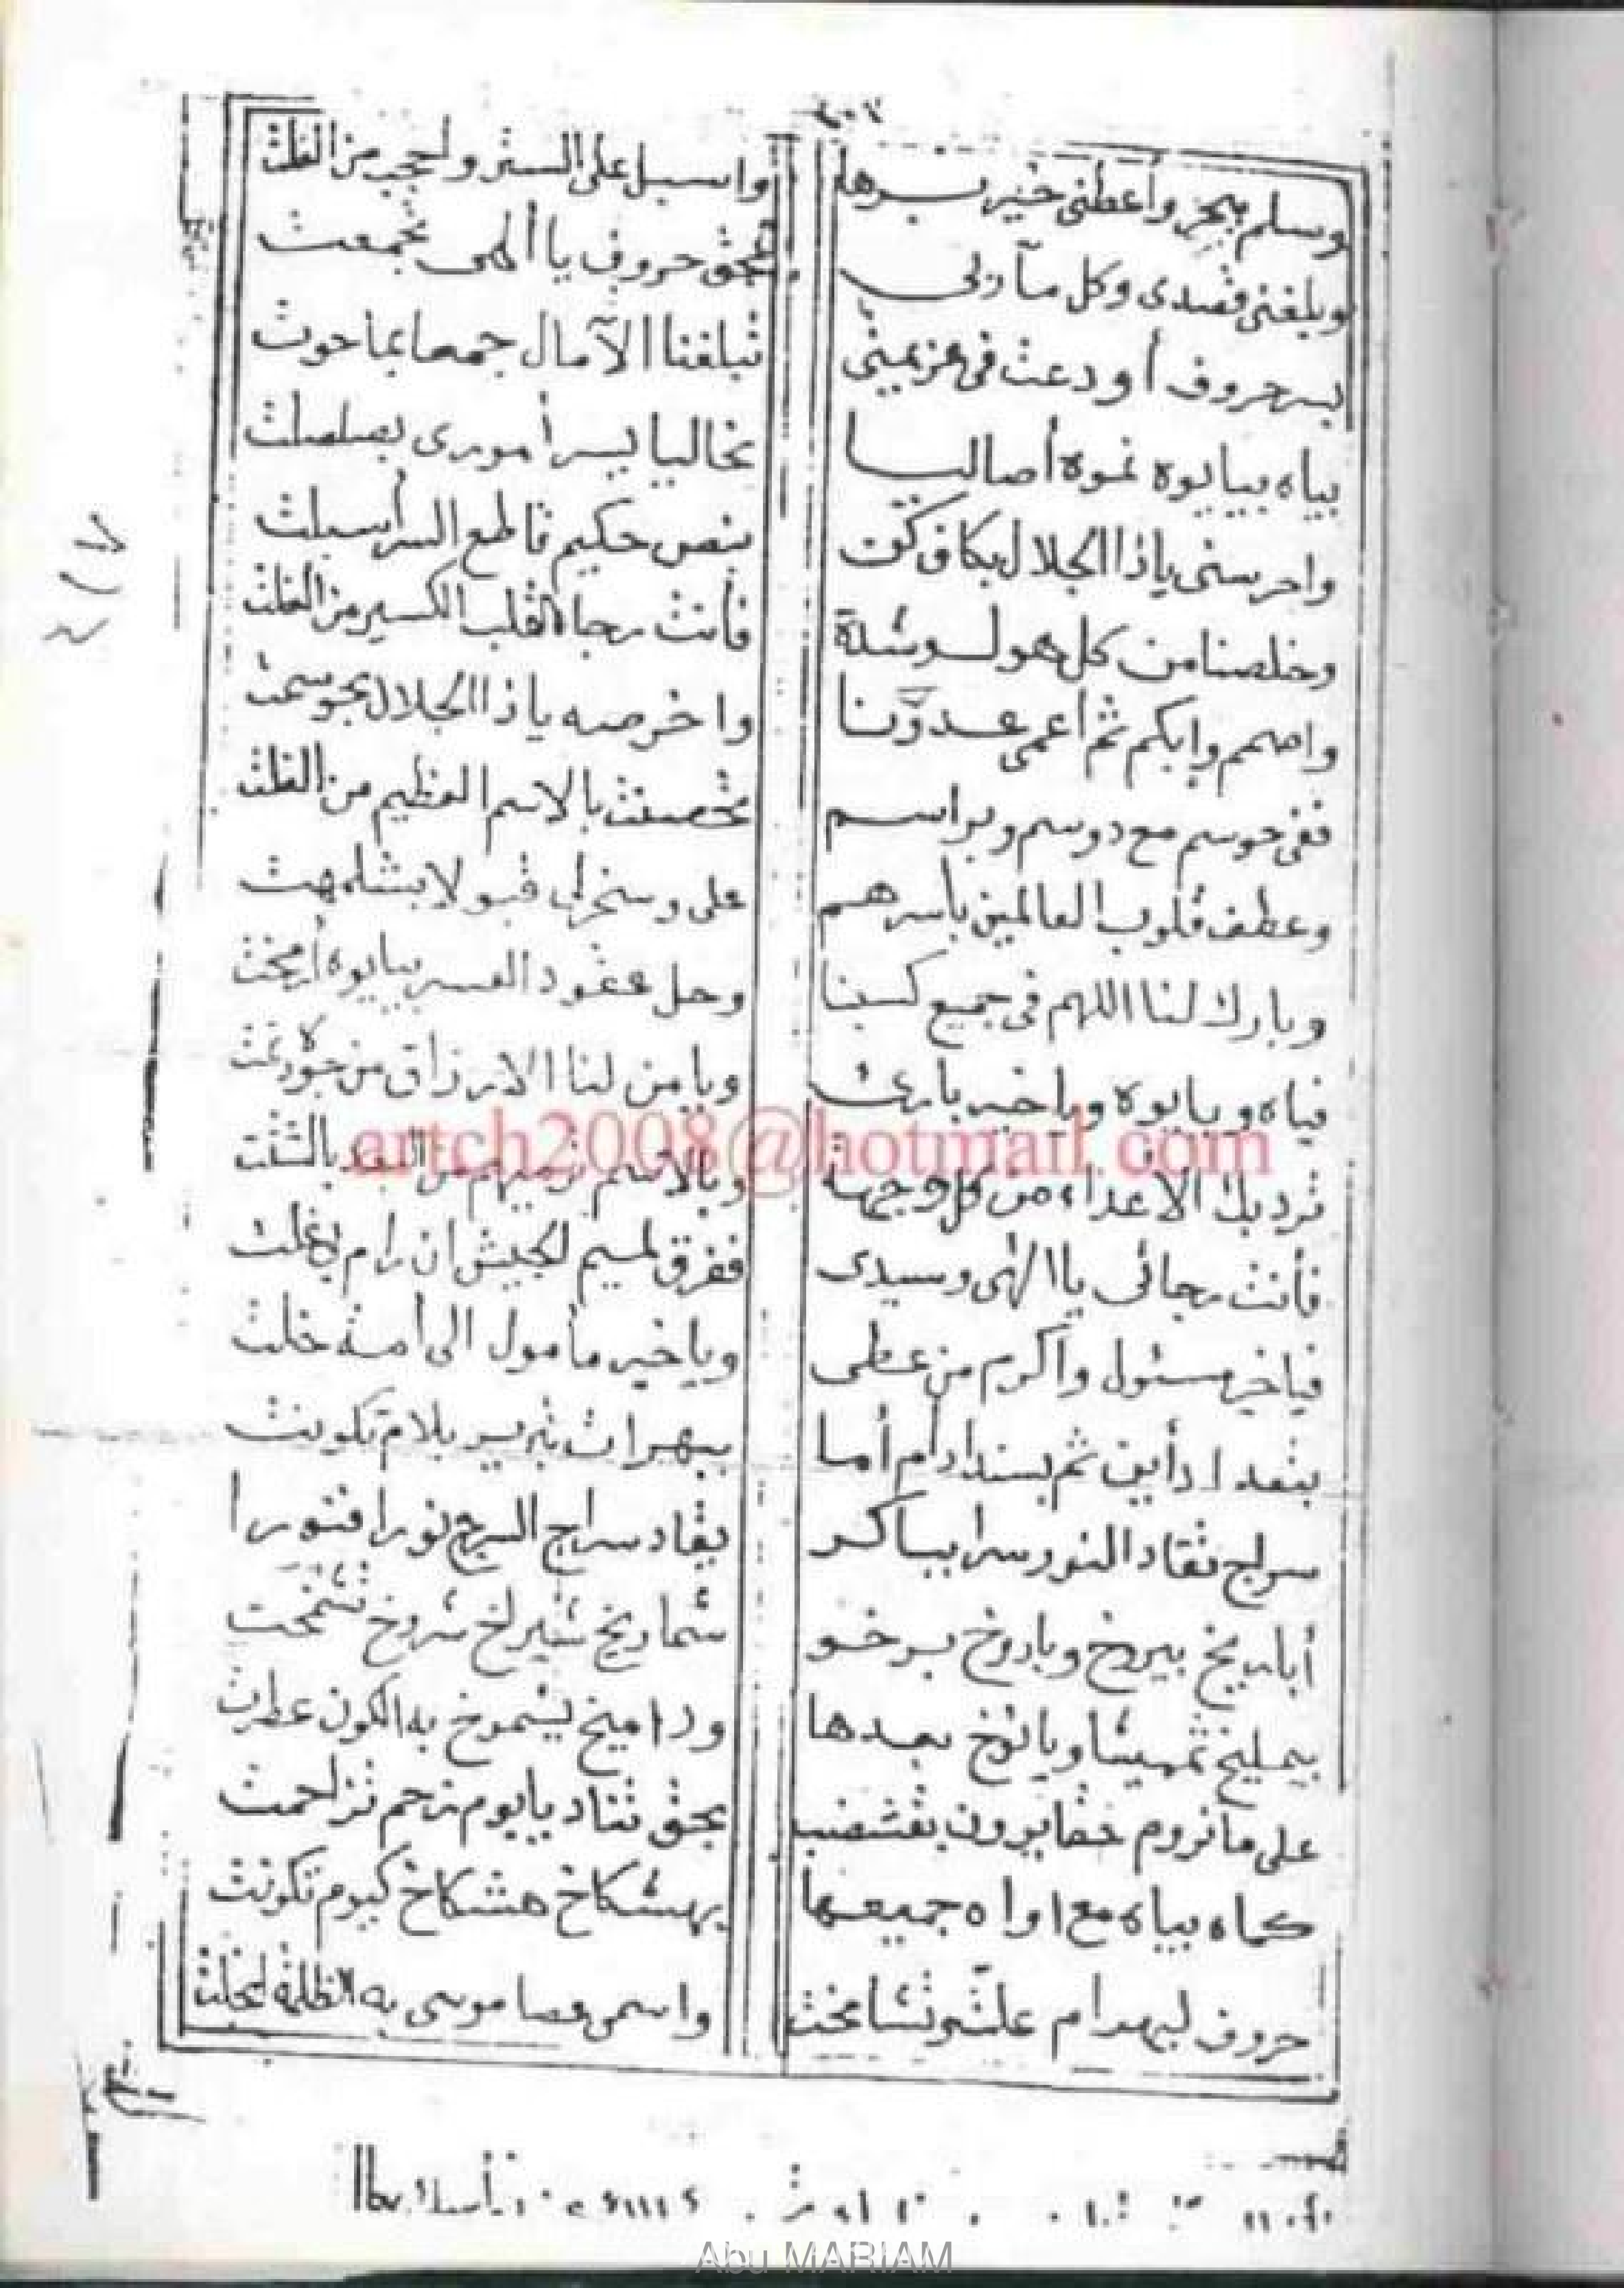 وسلم ببحر وأعطني خير برها واسبل على الستر واحجب من الغلت
وبلغني قصدي وكل مآربي بحق حروف يا إلهي تجمعت
بسر حروف أودعت في عزيمتي تبلغنا الآمال جمعا بما حوت
بياه بيايوه نموه أصاليا نجاليا يسر أموري بصلصلت
واحرسني ياذا الجلال بكاف كن بنص حكيم قاطع السر أسبلت
وخلصنا من كل هول وشدة فأنت رجاء القلب الكسير من الغلت
واصمم وابكم ثم اعمي عدونا واخرصه ياذا الجلال بحوسمت
ففي حوسم مع دوسم وبراسم تحصنت بالاسم العظيم من الغلت
وعطف قلوب العالمين بأسرهم علي وسخر لي قبولا بشلمهت
وبارك لنا اللهم في جميع كسبنا وحل عقود العسر بيايوه أرمخت
فياه ويايوه وياخير بارئ ويامن لنا الارزاق من جوده نمت
artch2008@hotmail.com
نرد بك الأعداء من كل وجهة وبالاسم نرميهم من البعد بالشتت
فأنت رجائي يا إلهي وسيدي ففرق لميم الجيش ان رام بي غلت
فياخير مسئول وأكرم من عطى وياخير مأمول الى أمة خلت
بتعداد أبين ثم بسند ادام أما ببهرات تبريز بلام تكونت
سراج تقاد النور سرا بياكر يقاد سراج السرج نورا فنورا
أباريخ بيروخ وباروخ برخو شماريخ شيراخ شروخ تشمخت
بيمليخ ثمهيثا ويانوخ بعدها وداميخ يشموخ به الكون عطرت
على مانروم بحق تناد يايوم زحم تزاحمت
كماه بياه مع اواه جميعها بهشكاخ هشكاخ كيوم تكونت
حروف لبهرام علت وتشامخت واسم عصا موسى به الظلمة انجلت
Abu MARIAM